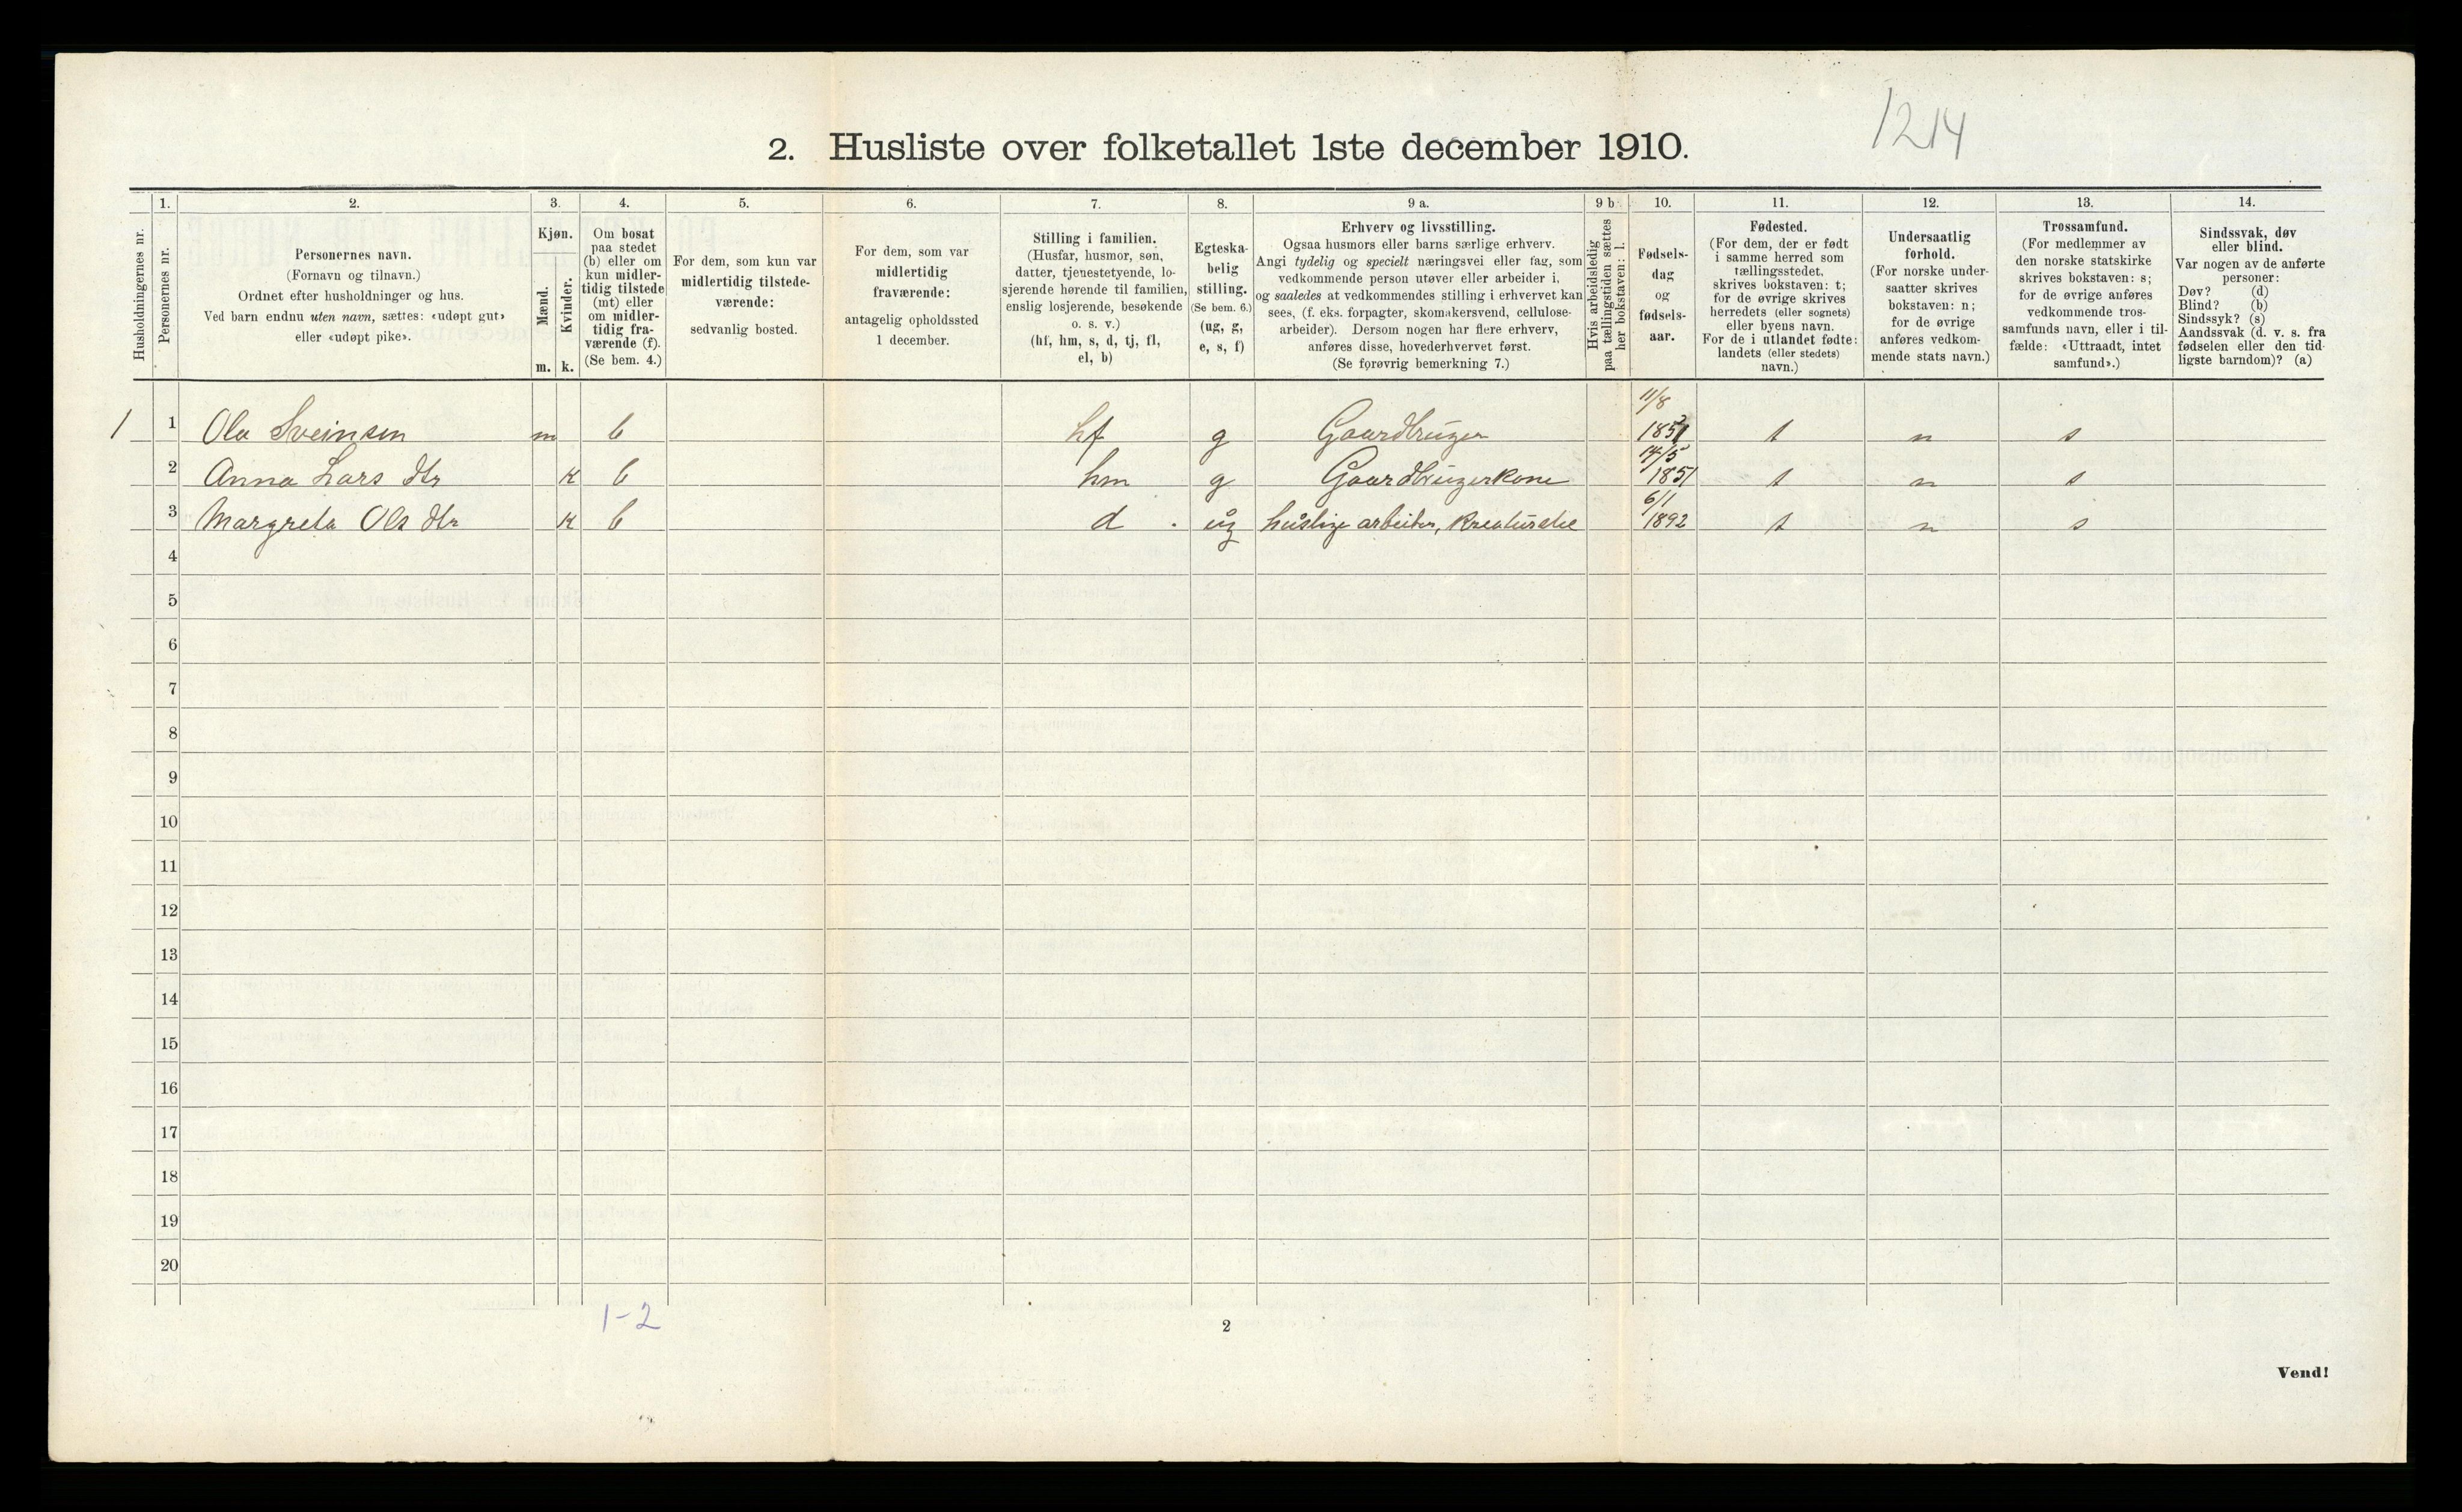 1214
2. Husliste over folketallet 1ste december 1910.
Husholdningernes nr.
1.
Personernes nr.
2.
Personernes navn.
(Fornavn og tilnavn.)
Ordnet efter husholdninger og hus.
Ved barn endnu uten navn, sættes: «udøpt gut»
eller «udøpt pike».
3.
Kjøn.
Mænd.
Kvinder.
m. k.
4.
Om bosat
paa stedet
(b) eller om
kun midler-
tidig tilstede
(mt) eller
om midler-
tidig fra-
værende (f).
(Se bem. 4.)
5.
For dem, som kun var
midlertidig tilstede-
værende:
sedvanlig bosted.
6.
For dem, som var
midlertidig
fraværende:
antagelig opholdssted
1 december.
7.
Stilling i familien.
(Husfar, husmor, søn,
datter, tjenestetyende, lo-
sjerende hørende til familien,
enslig losjerende, besøkende
o. s. v.)
(hf, hm, s, d, tj, fl,
el, b)
8.
Egteska-
belig
stilling.
(Se bem. 6.)
(ug, g,
e, s, f)
9 a.
Erhverv og livsstilling.
Ogsaa husmors eller barns særlige erhverv.
Angi tydelig og specielt næringsvei eller fag, som
vedkommende person utøver eller arbeider i,
og saaledes at vedkommendes stilling i erhvervet kan
sees, (f. eks. forpagter, skomakersvend, cellulose-
arbeider). Dersom nogen har flere erhverv,
anføres disse, hovederhvervet først.
(Se forøvrig bemerkning 7.)
9 b
Hvis arbeidsledig
paa tællingstiden sættes
her bokstaven: l.
10.
Fødsels-
dag
og
fødsels-
aar.
11.
Fødested.
(For dem, der er født
i samme herred som
tællingsstedet,
skrives bokstaven: t;
for de øvrige skrives
herredets (eller sognets)
eller byens navn.
For de i utlandet fødte:
landets (eller stedets)
navn.)
12.
Undersaatlig
forhold.
(For norske under-
saatter skrives
bokstaven: n;
for de øvrige
anføres vedkom-
mende stats navn.)
13.
Trossamfund.
(For medlemmer av
den norske statskirke
skrives bokstaven: s;
for de øvrige anføres
vedkommende tros-
samfunds navn, eller i til-
fælde: «Uttraadt, intet
samfund».)
14.
Sindssvak, døv
eller blind.
Var nogen av de anførte
personer:
Døv? (d)
Blind? (b)
Sindssyk? (s)
Aandssvak (d. v. s. fra
fødselen eller den tid-
ligste barndom)? (a)
11/8
1 1 Ola Sveinsen m b hf g Gaardbruger t n s
14/5
2 Anna Lars dtr k b hm g Gaardbrugerkone 1851 t n s
6/1
3 Margreta Ols dtr k b d ug huslige arbeider, 1892 t n s
4
5
6
7
8
9
10
11
12
13
14
15
16
17
18
19
20
1-2
2
Vend!